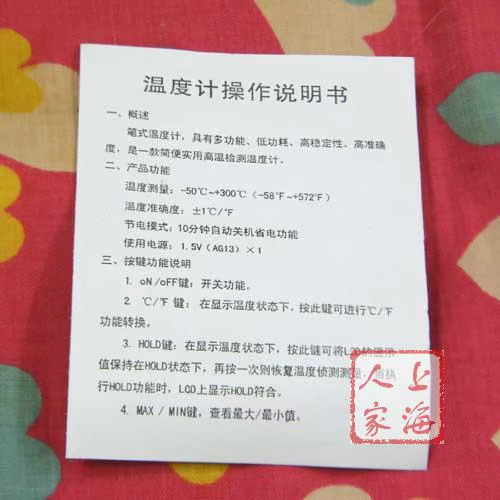 温度计操作说明书
一、概述
笔式温度计，具有多功能、低功耗、高稳定性、高准确
度，是一款简便实用高温检测温度计。
二、产品功能
温度测量：-50℃~+300℃（-58℉~+572℉）
温度准确度：±1℃/℉
节电模式：10分钟自动关机省电功能
使用电源：1.5V（AG13）×1
三、按键功能说明
1. oN /oFF键：开关功能。
2. ℃/℉ 键：在显示温度状态下，按此键可进行℃/℉
功能转换。
3. HOLD键：在显示温度状态下，按此键可将LCD的显示
值保持在HOLD状态下，再按一次则恢复温度侦测测量，当执
行HOLD功能时，LCD上显示HOLD符合。
4. MAX / MIN键，查看最大/最小值。
上海
人家